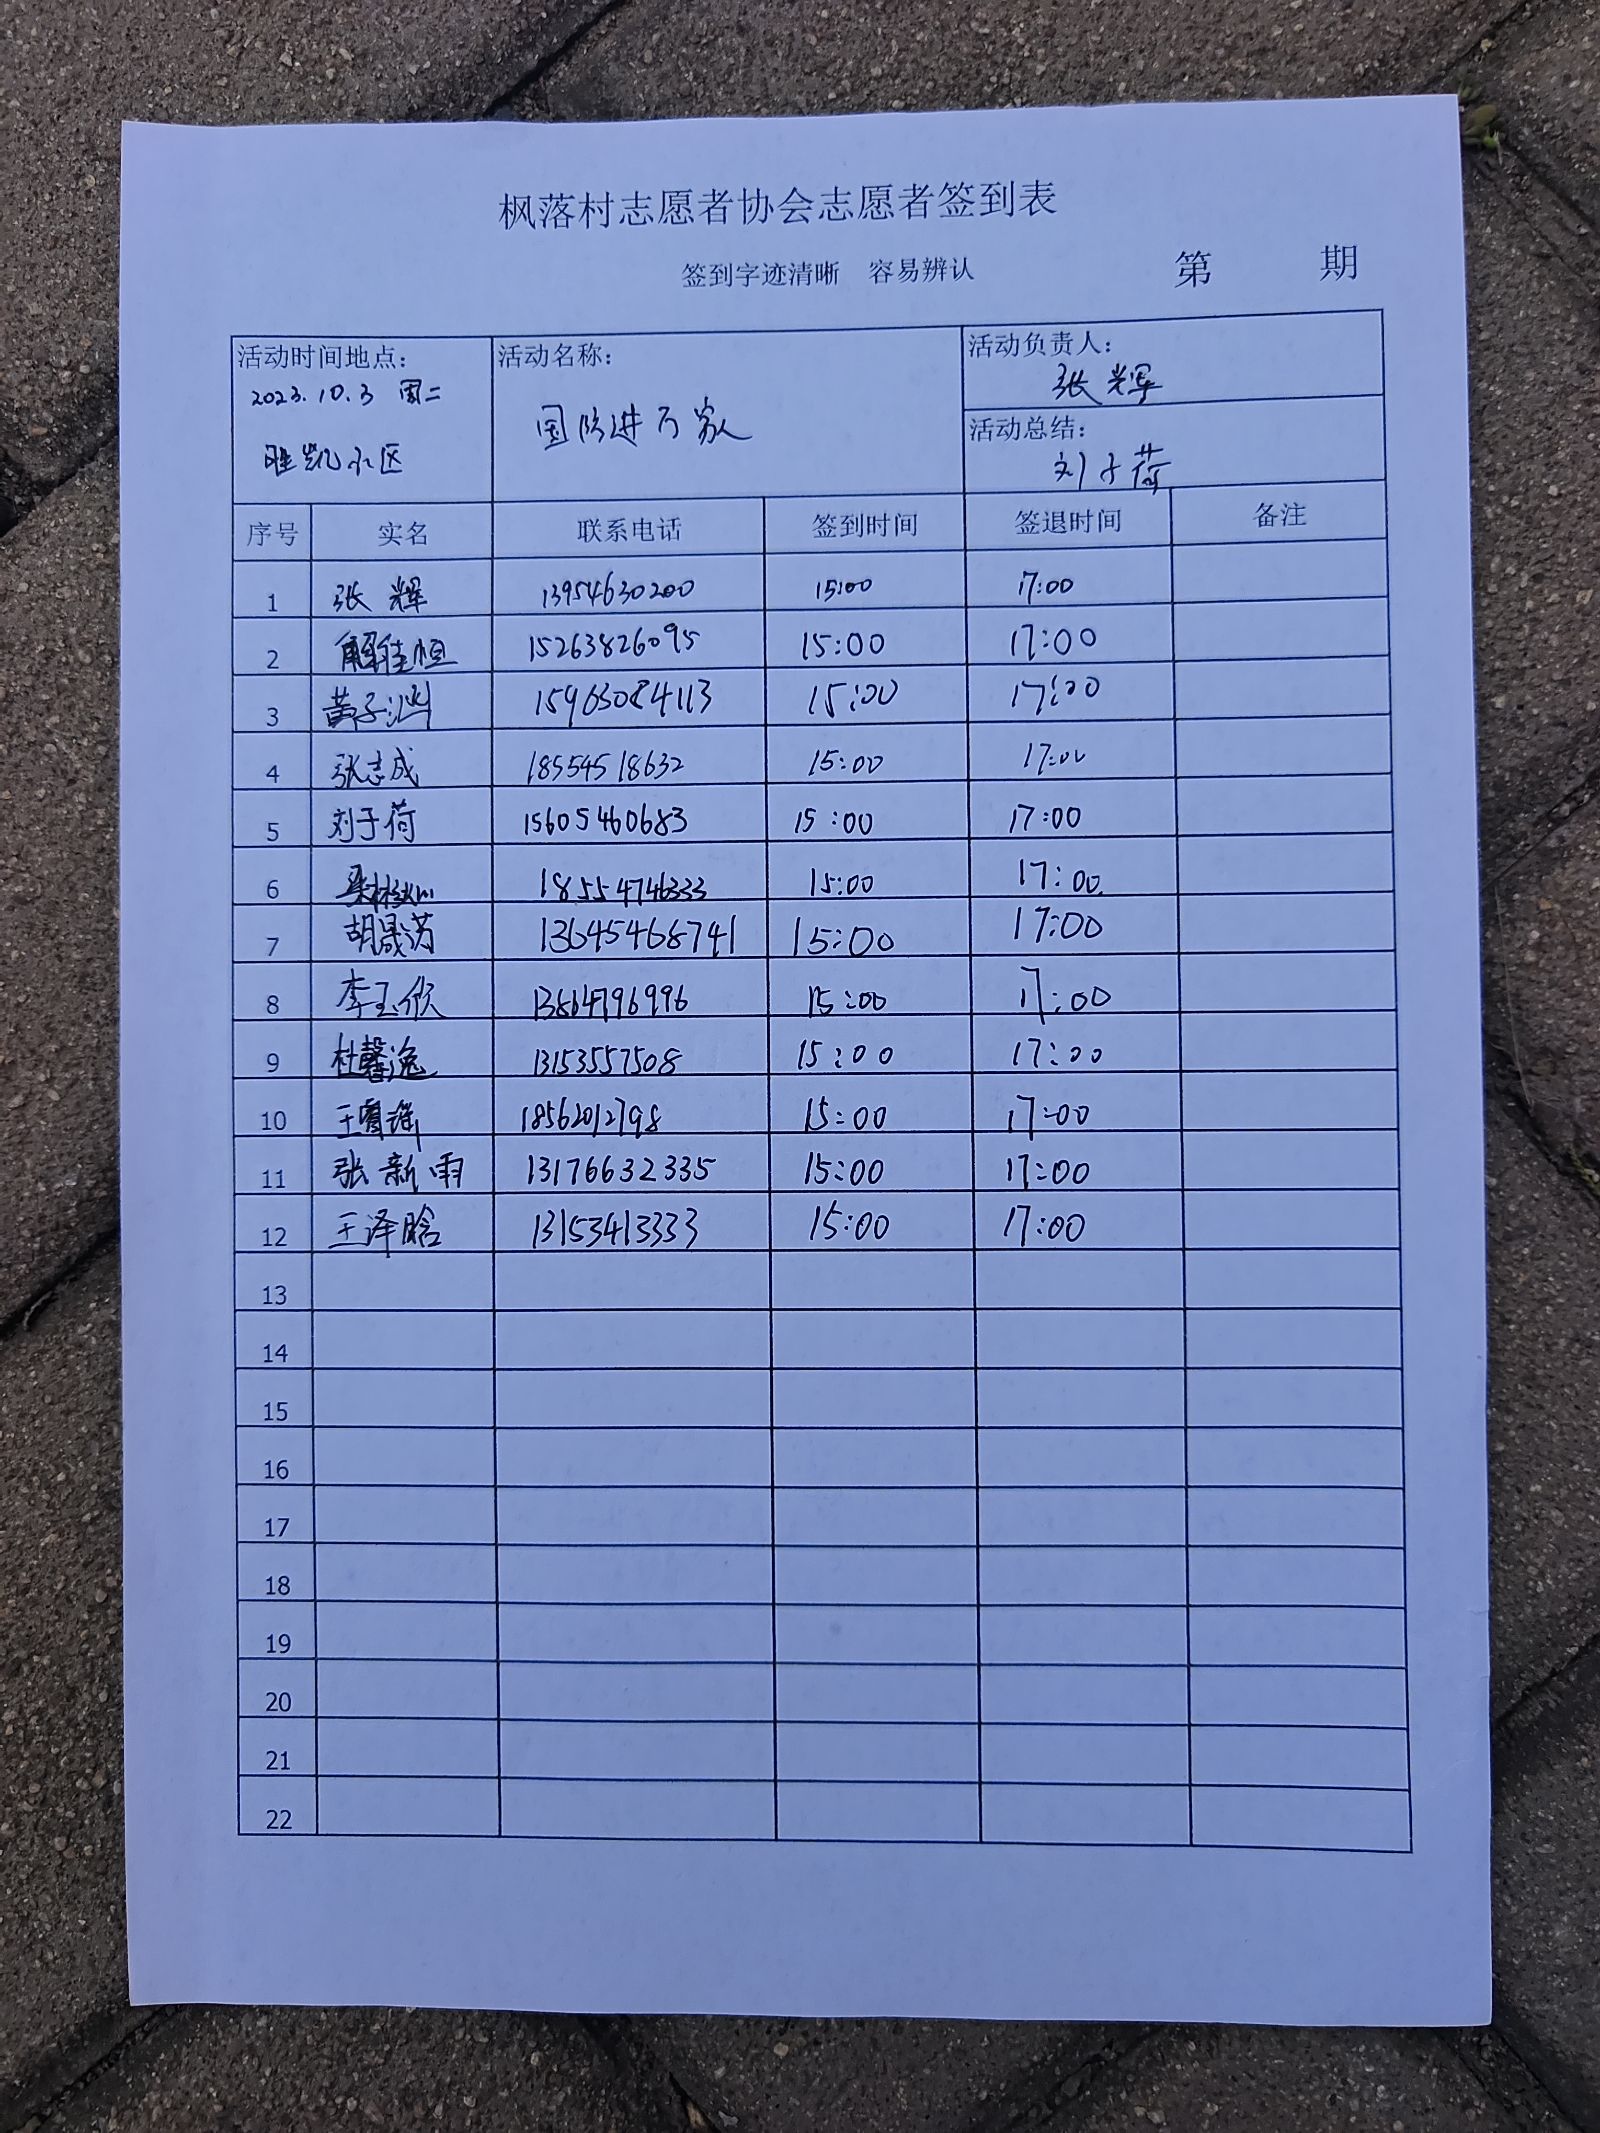 枫落村志愿者协会志愿者签到表
签到字迹清晰 容易辨认 第 期
活动时间地点： 活动名称： 活动负责人：
2023.10.3 周二 张辉
国防进万家 活动总结：
胜凯小区 刘于荷
序号 实名 联系电话 签到时间 签退时间 备注
1 张辉 13954630200 15:00 17:00
2 解佳恒 15263826095 15:00 17:00
3 黄子涵 15963084113 15:00 17:00
4 张志成 18554518632 15:00 17:00
5 刘于荷 15605460683 15:00 17:00
6 18554746333 15:00 17:00
7 胡晟菡 13645468741 15:00 17:00
8 李玉欣 13864796996 15:00 17:00
9 杜馨逸 13153557508 15:00 17:00
10 18562012798 15:00 17:00
11 张新雨 13176632335 15:00 17:00
12 王泽晗 13153413333 15:00 17:00
13
14
15
16
17
18
19
20
21
22